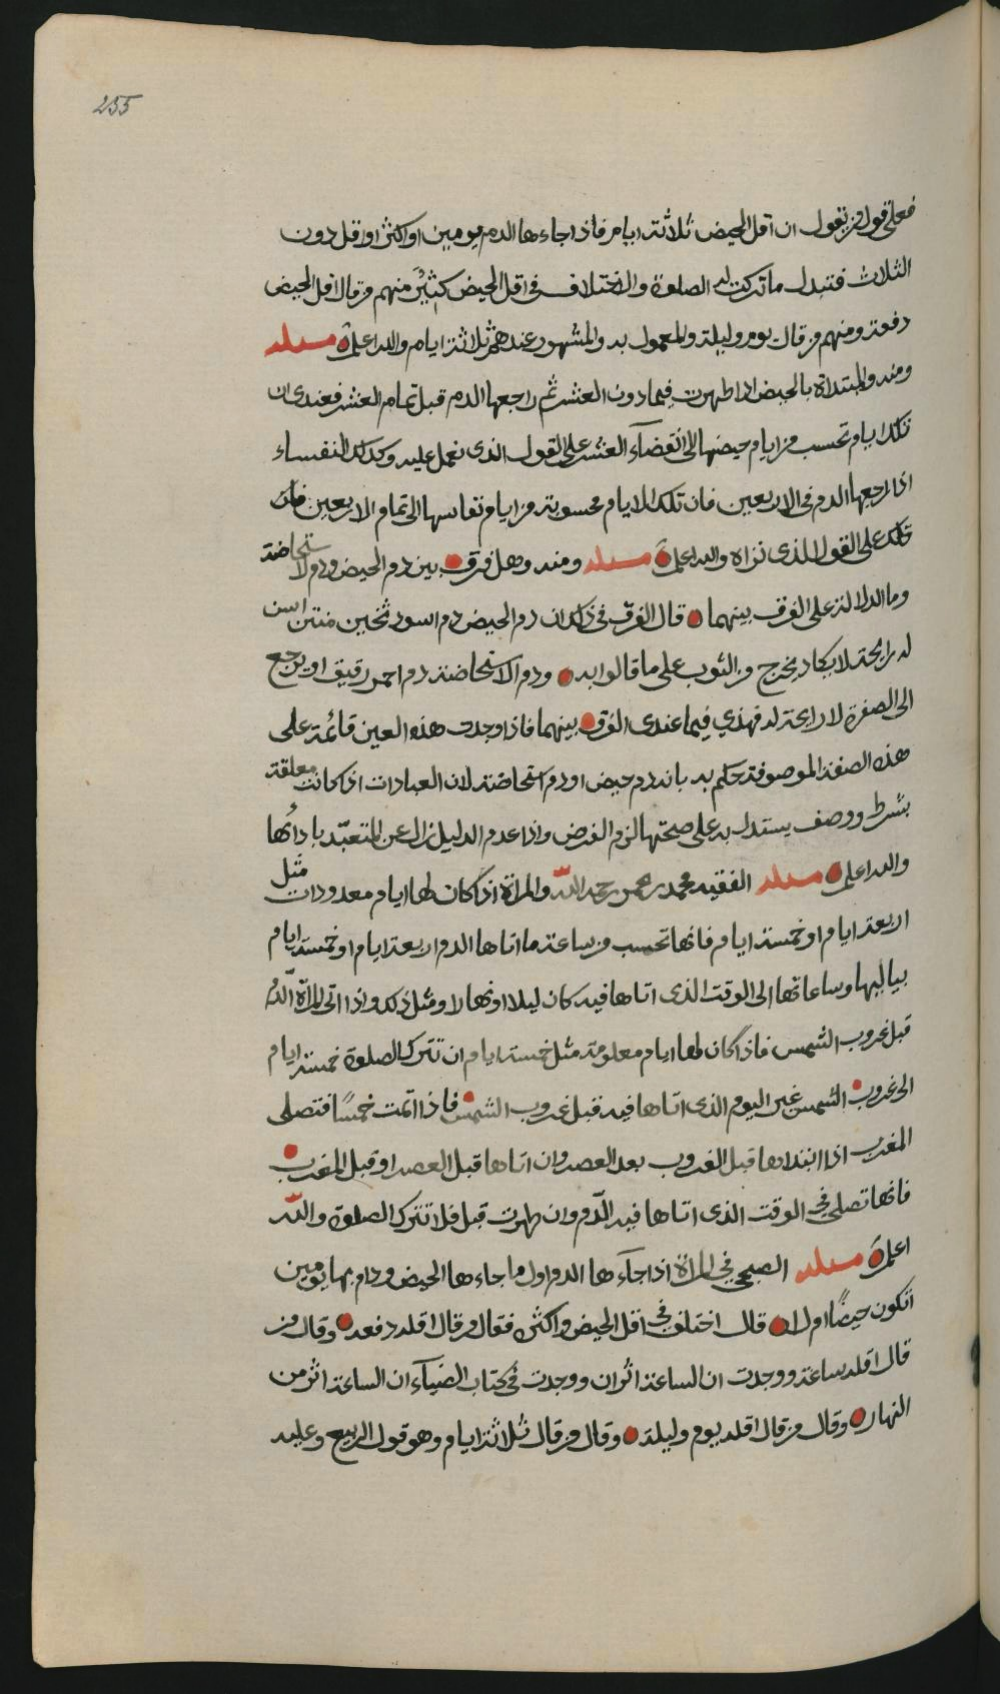 255
فعلى قول من يقول ان اقل الحيض ثلاثة ايام فاذا جاءها الدم يومين او اكثر او اقل دون
الثلاث فتبدل ما تركت له الصلوة والاختلاف في اقل الحيض كثير منهم من قال اقل الحيض
دفعة ومنهم من قال يوم وليلة والمعمول به والمشهور عندهم ثلاثة ايام والله اعلم مسئلة
ومنه والمبتداة بالحيض اذا طهرت فيما دون العشر ثم راجعها الدم قبل تمام العشر فعندي ان
تلك ايام تحسب من ايام حيضها الى انقضآء العشر على القول الذي نعمل عليه وكذلك النفساء
اذا راجعها الدم في الاربعين فان تلك الايام محسوبة من ايام نفاسها الى تمام الاربعين
تلك على القول الذي نراه والله اعلم مسئلة ومنه وهل فرق بين دم الحيض ودم الاستحاضة
وما الدلالة على الفرق بينهما قال الفرق في ذلك ان دم الحيض دم اسود ثخين منتن اسن
له رايحة لا يكاد يخرج من الثوب على ما قالوا به ودم الاستحاضة دم احمر رقيق او يرجع
الى الصفرة لا رايحة له فهذي فيما عندي الفرق بينهما فاذا وجدت هذه العين قائمة على
هذه الصفة الموصوفة حكم به بانه دم حيض او دم استحاضة لان العبادات اذا كانت معلقة
بشرط ووصف يستدل به على صحتها لزم الفرض واذا عدم الدليل زال عن المتعبّد بادائها
والله اعلم مسئلة الفقيه محمد بن عمر رحمه الله والمراة اذا كان لها ايام معدودات مثل
اربعة ايام او خمسة ايام فانها تحسب من ساعة ما اتاها الدم اربعة ايام او خمسة ايام
بياليها وساعاتها الى الوقت الذي اتاها فيه كان ليلا او نهارا ومثل ذلك واذا اتى المراة الدّم
قبل غروب الشمس فاذا كان لها ايام معلومة مثل خمسة ايام ان تترك الصلوة خمسة ايام
الى غروب الشمس غير اليوم الذي اتاها فيه قبل غروب الشمس فاذا اتمت خمسًا فتصلي
المغرب اذا ابتداها قبل الغروب بعد العصر وان اتاها قبل العصر او قبل المغرب
فانها تصلي في الوقت الذي اتاها فيه الدّم وان طهرت قبل فلا تترك الصلوة والله
اعلم مسئلة الصبحي في المراة اذا جآءها الدم اول ما جاءها الحيض ودام بها يومين
اتكون حيضًا ام لا قال اختلف في اقل الحيض واكثره فقال من قال اقله دفعة وقال من
قال اقله ساعة ووجدت ان الساعة اثران ووجدت في كتاب الضيآء ان الساعة اثر من
النهار وقال من قال اقله يوم وليلة وقال من قال ثلاثة ايام وهو قول الربيع وعليه